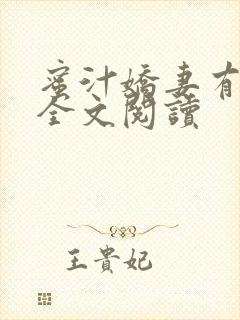 蜜汁嬌妻有
全文閱讀
王貴妃